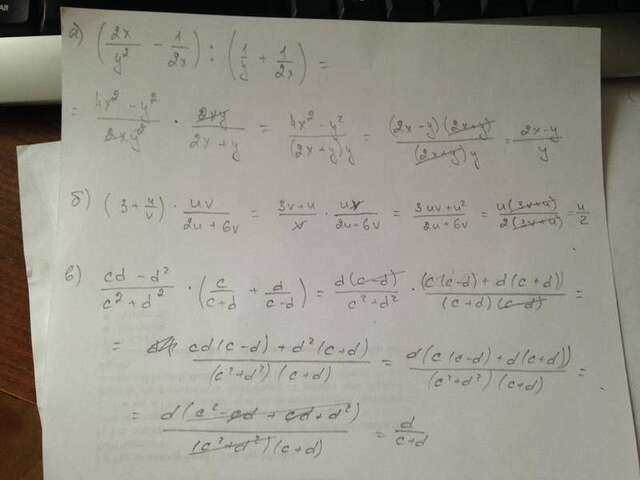 а) (2x/y² - 1/2x) : (1/y + 1/2x) =
= (4x² - y²)/(2xy²) · 2xy/(2x + y) = (4x² - y²)/((2x+y)y) = ((2x-y)(2x+y))/((2x+y)y) = (2x-y)/y
б) (3 + u/v) · uv/(2u + 6v) = (3v+u)/v · uv/(2u-6v) = (3uv+u²)/(2u-6v) = u(3v+u)/(2(3v+u)) = u/2
в) (cd - d²)/(c² + d²) · (c/(c+d) + d/(c-d)) = d(c-d)/(c²+d²) · (c(c-d)+d(c+d))/((c+d)(c-d)) =
= (cd(c-d) + d²(c+d))/((c²+d²)(c+d)) = d(c(c-d)+d(c+d))/((c²+d²)(c+d)) =
= d(c²-cd+cd+d²)/((c²+d²)(c+d)) = d/(c+d)